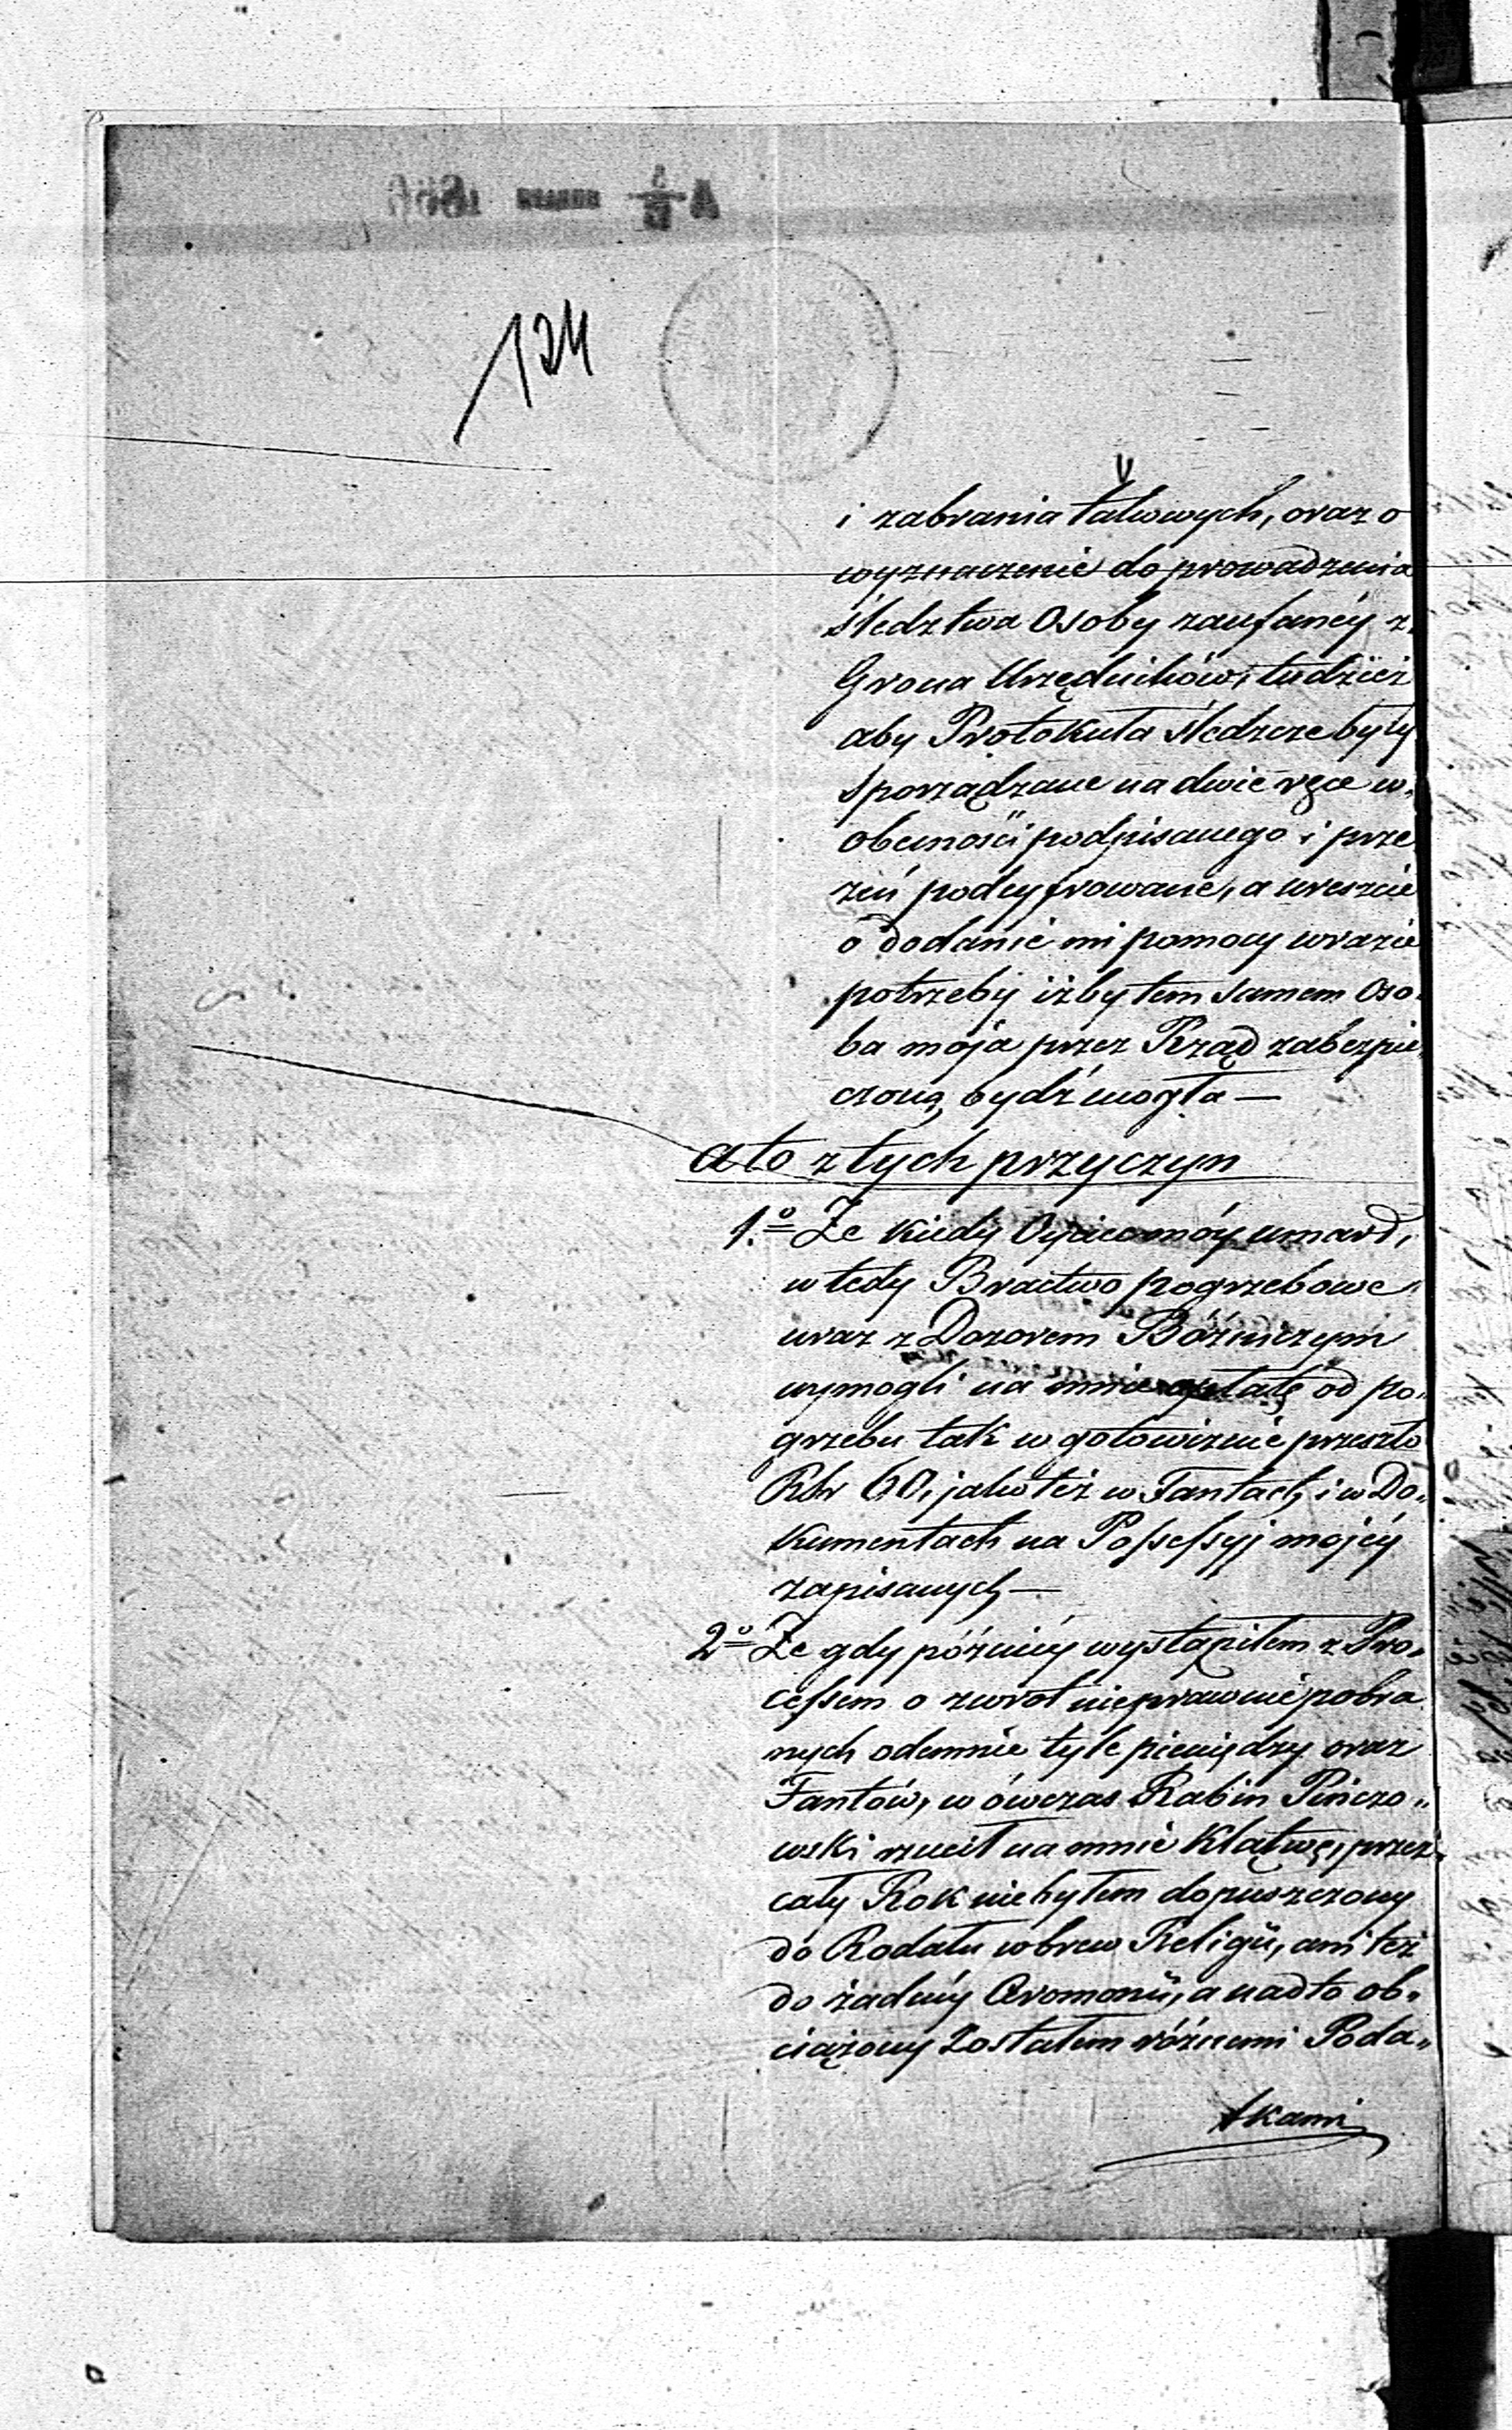 124
i zabrania takowych, oraz o
wyznaczenie do prowadzenia
śledztwa Osoby zaufanéy z
Grona Urzędników, tudzież
aby Protokuła śledcze były
sporządzane na dwie ręce w
obecności podpisanego i prze
zeń podcyfrowane, a wreszcie
o dodanie mi pomocy w razie
potrzeby iżby tem samem Oso-
ba moja przez Rząd zabezpie-
czoną bydź mogła —
a to z tych przyczyn
1.º Że kiedy Oyciec móy umarł,
wtedy Bractwo pogrzebowe
wraz z Dozorem Bóżniczym
wymogli na mnie opłatę od po-
grzebu tak w gotowiznie przeszło
Rsr 60, jako też w Fantach i w Do-
kumentach na Possessyj mojéy
zapisanych —
2º Że gdy późniéy wystąpiłem z Pro-
cessem o zwrot nieprawnie pobra
nych odemnie tyle pieniędzy oraz
Fantów, w ówczas Rabin Pińczo-
wski rzucił na mnie Klątwę, przez
cały Rok nie byłem dopuszczony
do Rodału wbrew Religii, ani też
do żadnéy Ceremonii, a nadto ob-
ciążony Zostałem różnemi Poda-
tkami